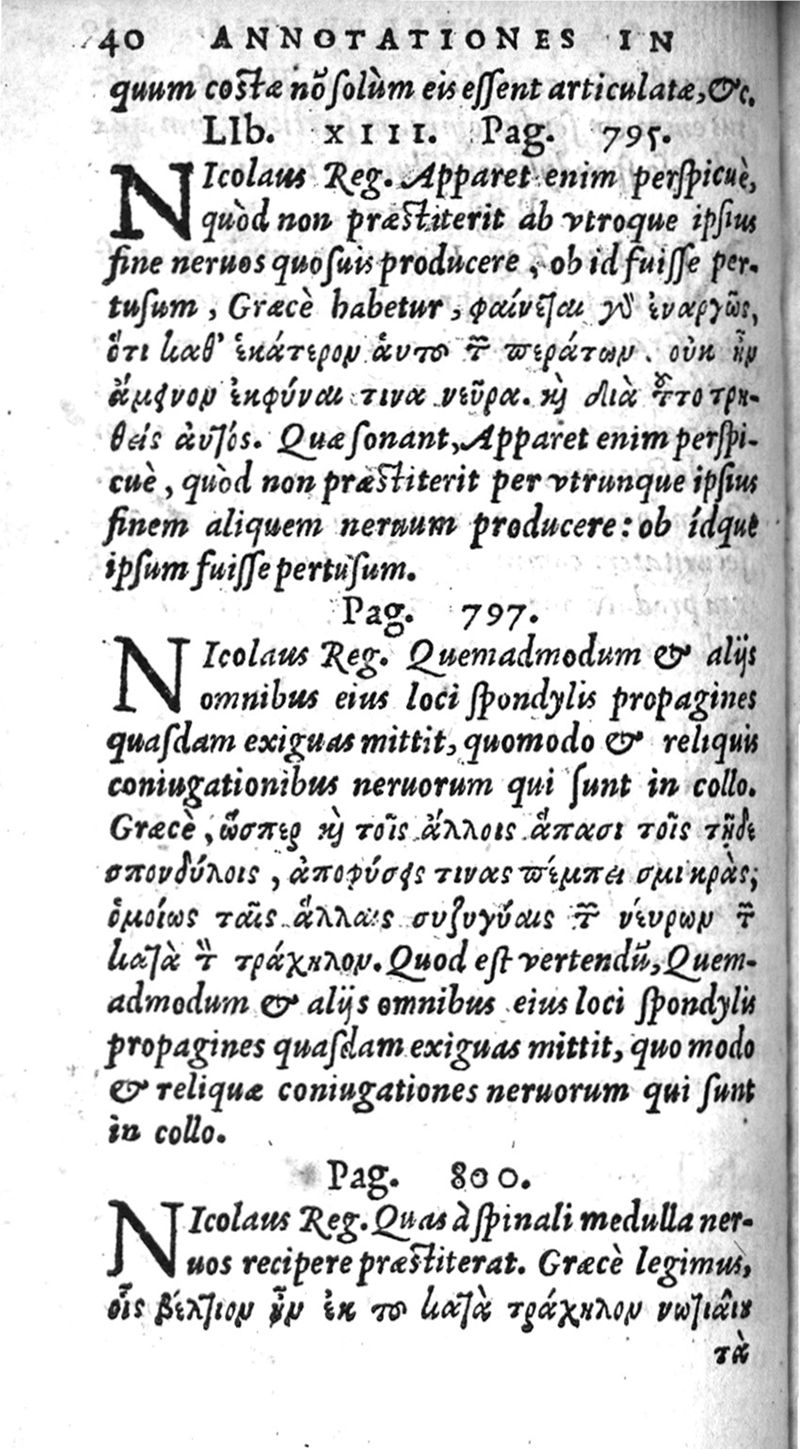 40 ANNOTATIONES IN
quum costæ nõ solùm eis essent articulatæ, &c.
LIb. XIII. Pag. 795.
NIcolaus Reg. Apparet enim perspicuè,
quòd non præstiterit ab vtroque ipsius
fine neruos quosuis producere, ob id fuisse per-
tusum, Græcè habetur, φαίνεται γὰρ ἐναργῶς,
ὅτι καθ' ἑκάτερον ἀυτοῦ τῶν περάτων. οὐκ ἦν
ἄμεινον ἐκφύναι τινα νεῦρα. καὶ διὰ τοῦτο τρη-
θεὶς ἀυτός. Quæ sonant, Apparet enim perspi-
cuè, quòd non præstiterit per vtrunque ipsius
finem aliquem neruum producere: ob idque
ipsum fuisse pertusum.
Pag. 797.
NIcolaus Reg. Quemadmodum & alijs
omnibus eius loci spondylis propagines
quasdam exiguas mittit, quomodo & reliquis
coniugationibus neruorum qui sunt in collo.
Græcè, ὥσπερ καὶ τοῖς ἄλλοις ἅπασι τοῖς τῇδε
σπονδύλοις, ἀποφύσεις τινας πέμπει σμικρὰς,
ὁμοίως ταῖς ἄλλαις συζυγίαις τῶν νεύρων τῶν
κατὰ τὸν τράχηλον. Quod est vertendũ, Quem-
admodum & alijs omnibus eius loci spondylis
propagines quasdam exiguas mittit, quo modo
& reliquæ coniugationes neruorum qui sunt
in collo.
Pag. 800.
NIcolaus Reg. Quas à spinali medulla ner-
uos recipere præstiterat. Græcè legimus,
οἷς βέλτιον ἦν ἐκ τοῦ κατὰ τράχηλον νωτιαίου
τὰ